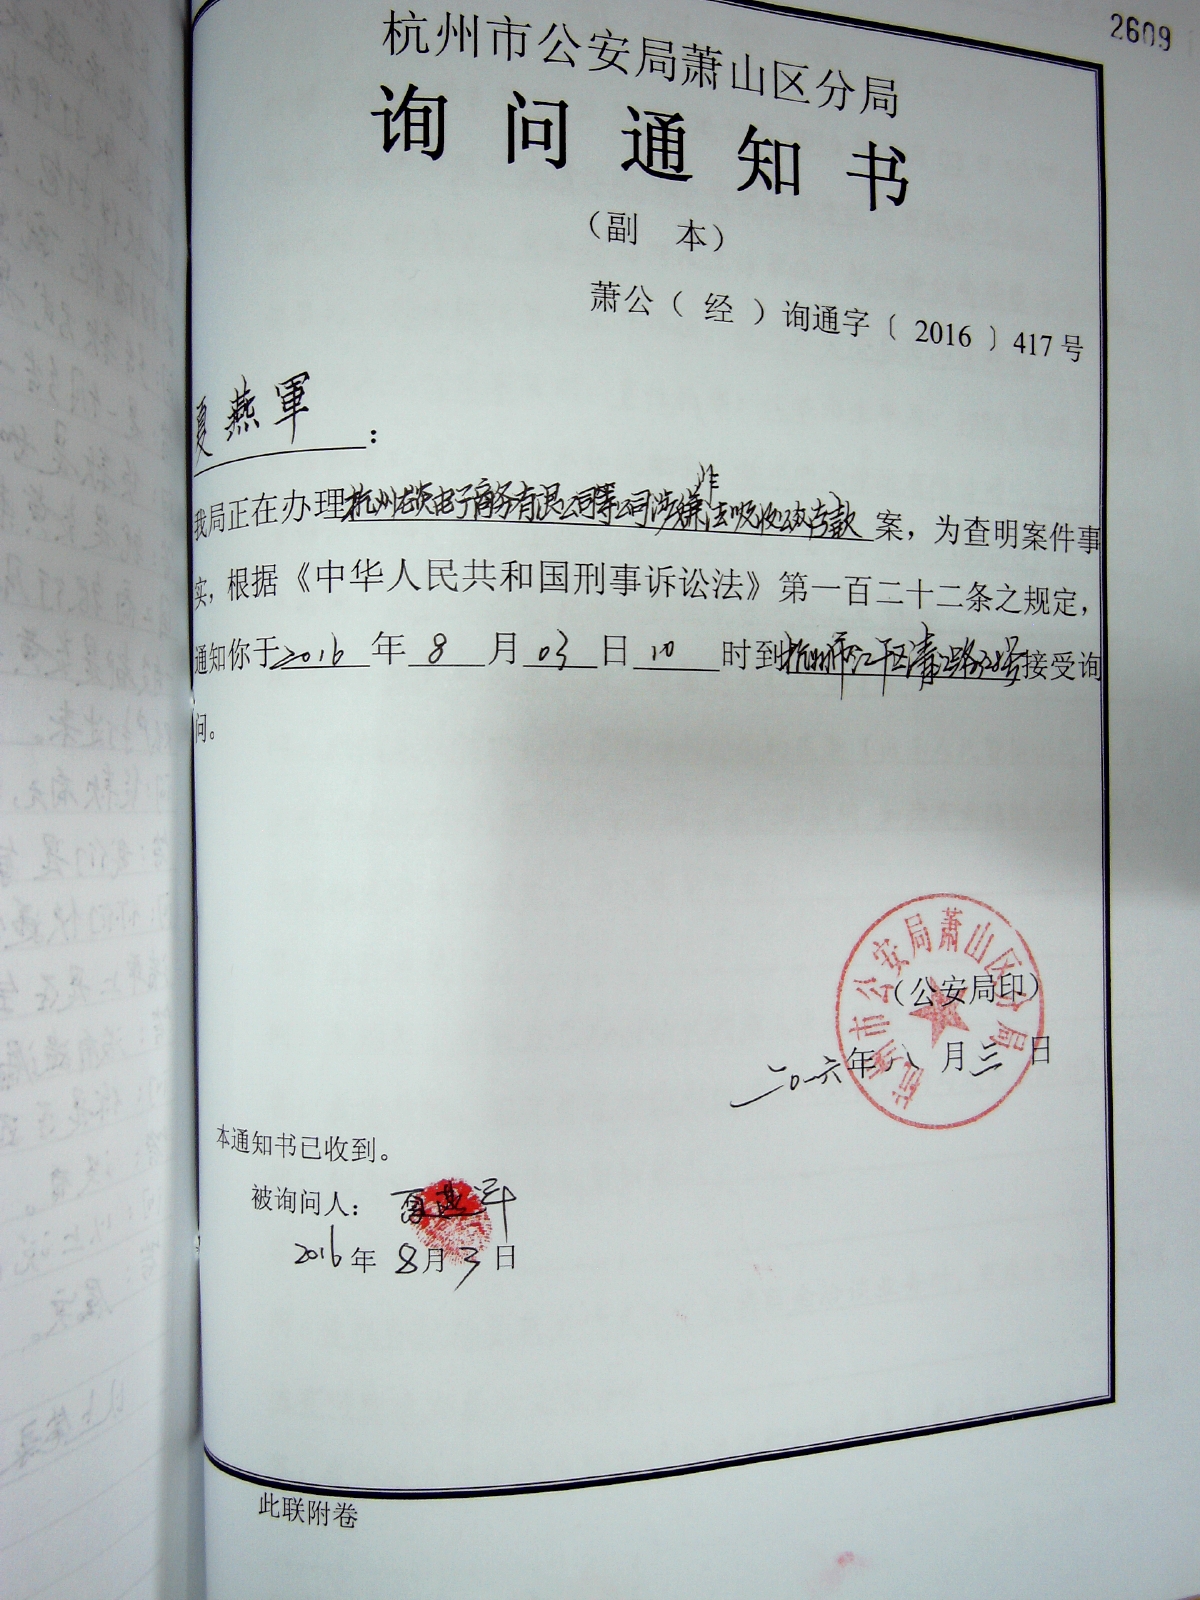 2609
杭州市公安局萧山区分局
询问通知书
（副 本）
萧公（ 经 ）询通字〔 2016 〕417号
夏燕軍：
我局正在办理杭州 电子商务有限公司等公司涉嫌非法吸收公众存款案，为查明案件事
实，根据《中华人民共和国刑事诉讼法》第一百二十二条之规定，
通知你于2016年8月03日10时到杭州市江干区清江路 号接受询
问。
杭州市公安局萧山区分局
（公安局印）
二0一六年八月三日
本通知书已收到。
被询问人：夏燕军
2016年8月3日
此联附卷